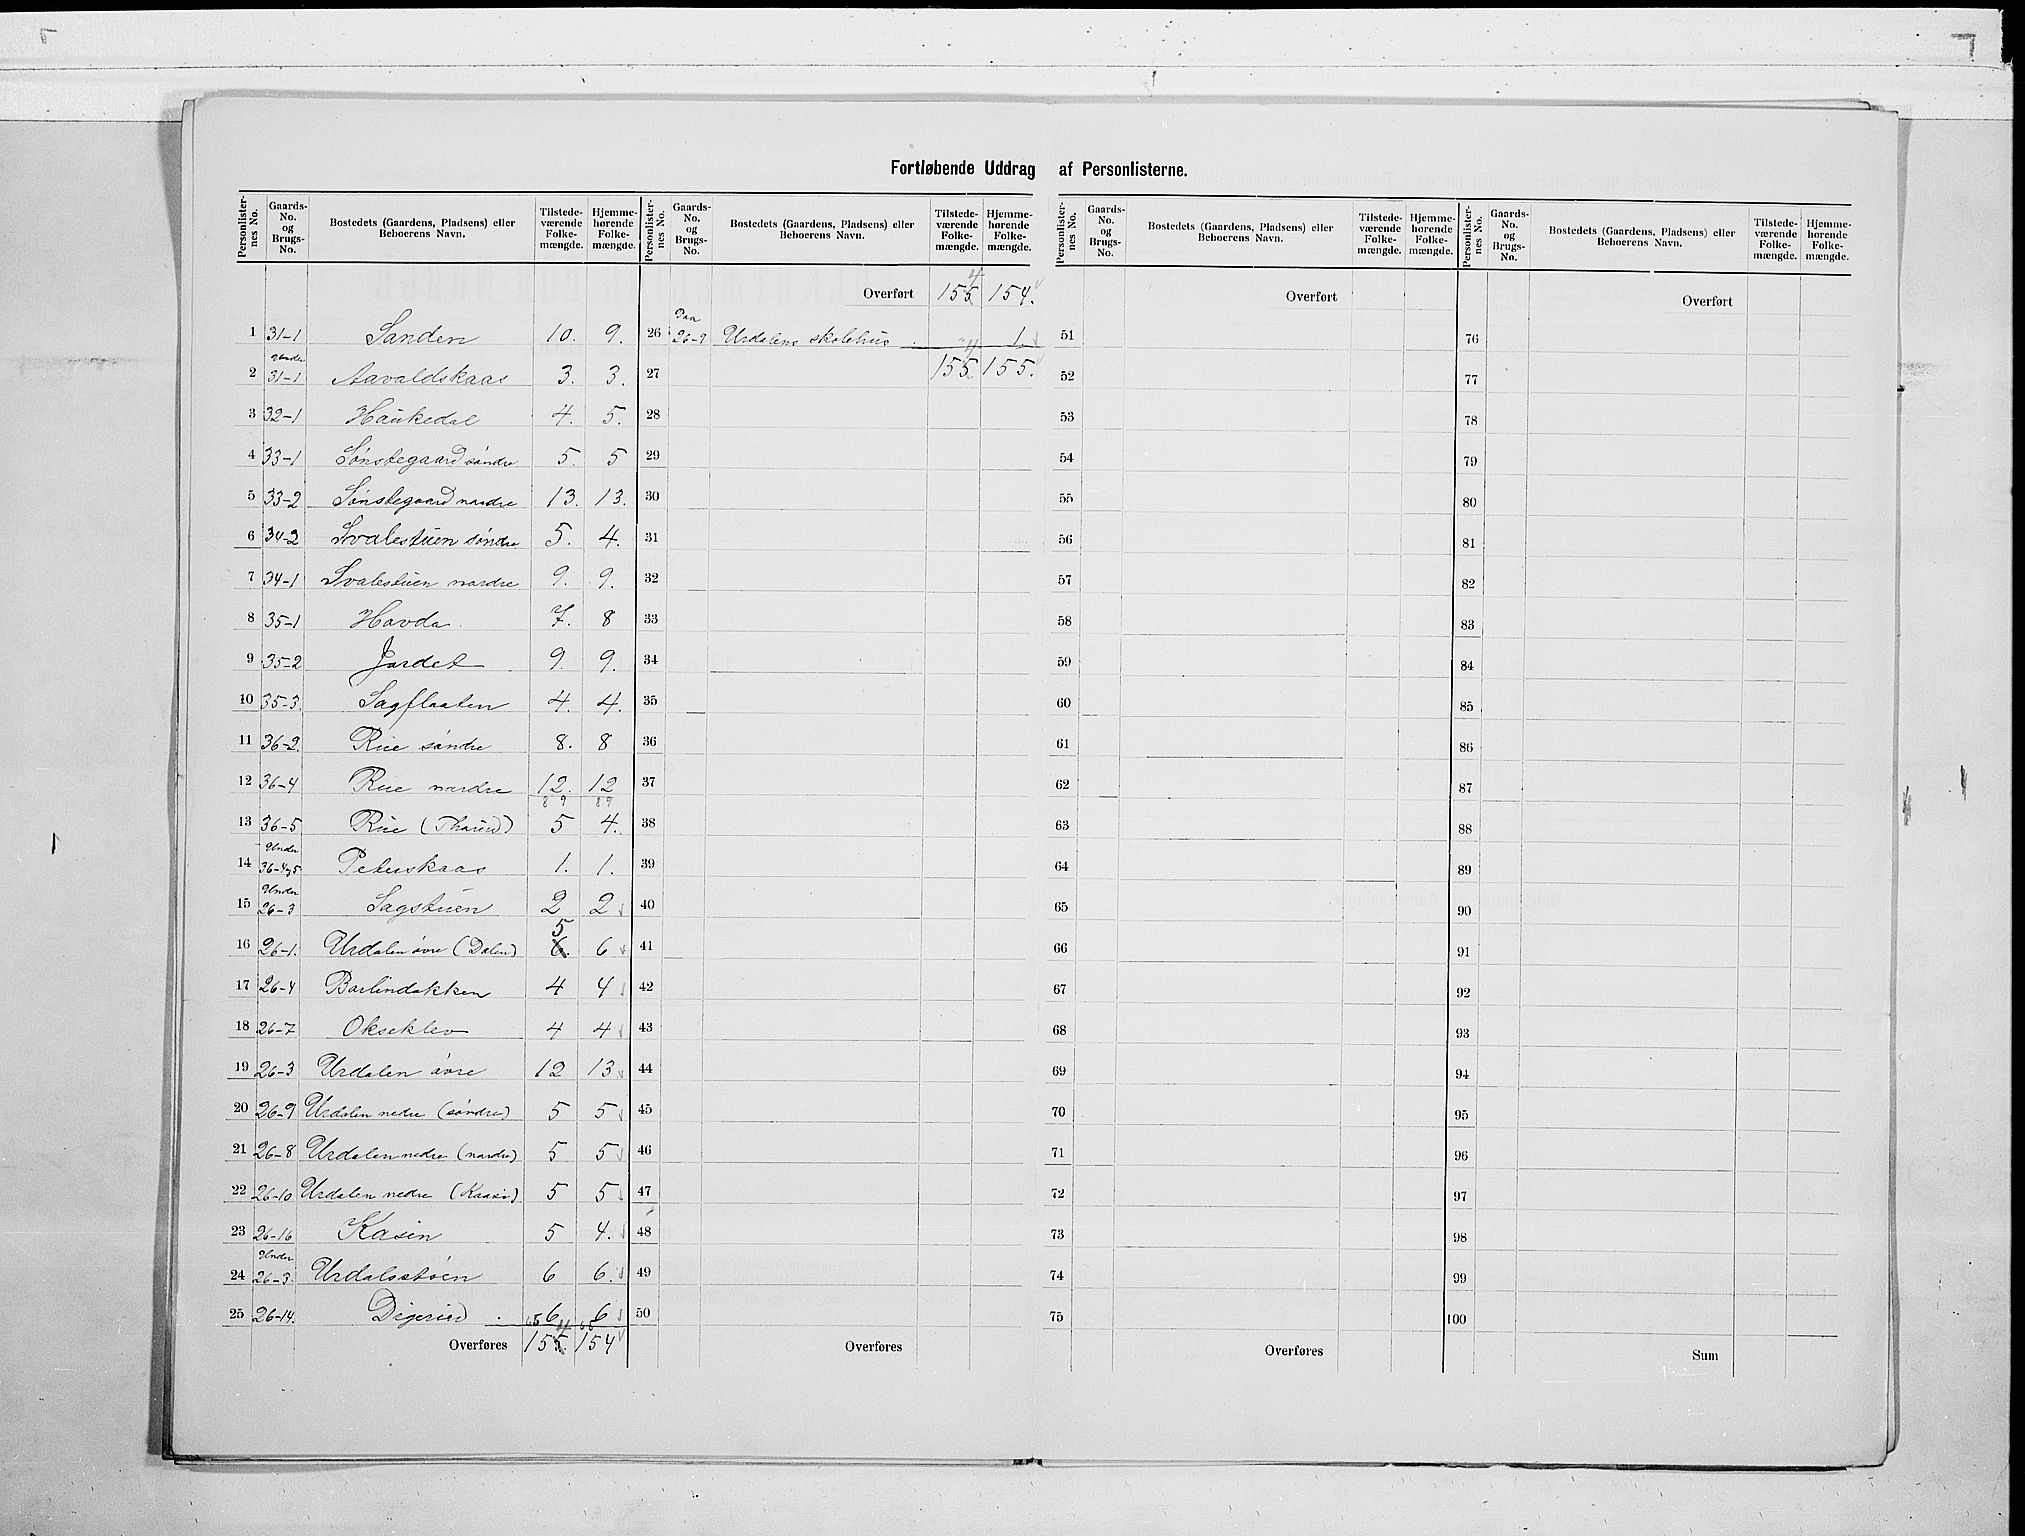 Fortløbende Uddrag af Personlisterne.
Personlisternes No. | Gaards-No. og Brugs-No. | Bostedets (Gaardens, Pladsens) eller Beboerens Navn. | Tilstedeværende Folkemængde. | Hjemmehørende Folkemængde.
1 31-1 Sanden 10. 9.
2 Under 31-1 Aavaldskaas 3. 3.
3 32-1 Haukedal 4. 5.
4 33-1 Sønstegaard søndre 5. 5
5 33-2 Sønstegaard nordre 13. 13.
6 34-2 Svalestuen søndre 5. 4.
7 34-1 Svalestuen nordre 9. 9.
8 35-1 Hovda 7. 8
9 35-2 Jordet 9. 9.
10 35-3. Sagflaaten 4. 4.
11 36-2. Rue søndre 8. 8
12 36-4 Rue nordre 12. 12
89 89
13 36-5 Rue (Tharud) 5 4.
14 Under 36-4og5 Peterskaas 1. 1.
15 Under 26-3 Sagstuen 2 2
16 26-1. Urdalen øvre (Dalen) 6. 5 6
17 26-4 Barlindakken 4 4
18 26-7 Okseklev 4 4
19 26-3 Urdalen øvre 12 13
20 26-9 Urdalen nedre (søndre) 5 5
21 26-8 Urdalen nedre (nordre) 5 5
22 26-10 Urdalen nedre (Kaasa) 5 5
23 26-16 Kasin 5 4.
24 Under 26-3. Urdalsstøen 6 6.
25 26-14. Digerud 6 6
65 65
Overføres 155 4 154
Personlisternes No. | Gaards-No. og Brugs-No. | Bostedets (Gaardens, Pladsens) eller Beboerens Navn. | Tilstedeværende Folkemængde. | Hjemmehørende Folkemængde.
Overført 155 4 154.
26 Paa 26-9 Urdalens skolehus 1.
27 155 4 155.
28
29
30
31
32
33
34
35
36
37
38
39
40
41
42
43
44
45
46
47
48
49
50
Overføres
Personlisternes No. | Gaards-No. og Brugs-No. | Bostedets (Gaardens, Pladsens) eller Beboerens Navn. | Tilstedeværende Folkemængde. | Hjemmehørende Folkemængde.
Overført
51
52
53
54
55
56
57
58
59
60
61
62
63
64
65
66
67
68
69
70
71
72
73
74
75
Overføres
Personlisternes No. | Gaards-No. og Brugs-No. | Bostedets (Gaardens, Pladsens) eller Beboerens Navn. | Tilstedeværende Folkemængde. | Hjemmehørende Folkemængde.
Overført
76
77
78
79
80
81
82
83
84
85
86
87
88
89
90
91
92
93
94
95
96
97
98
99
100
Sum